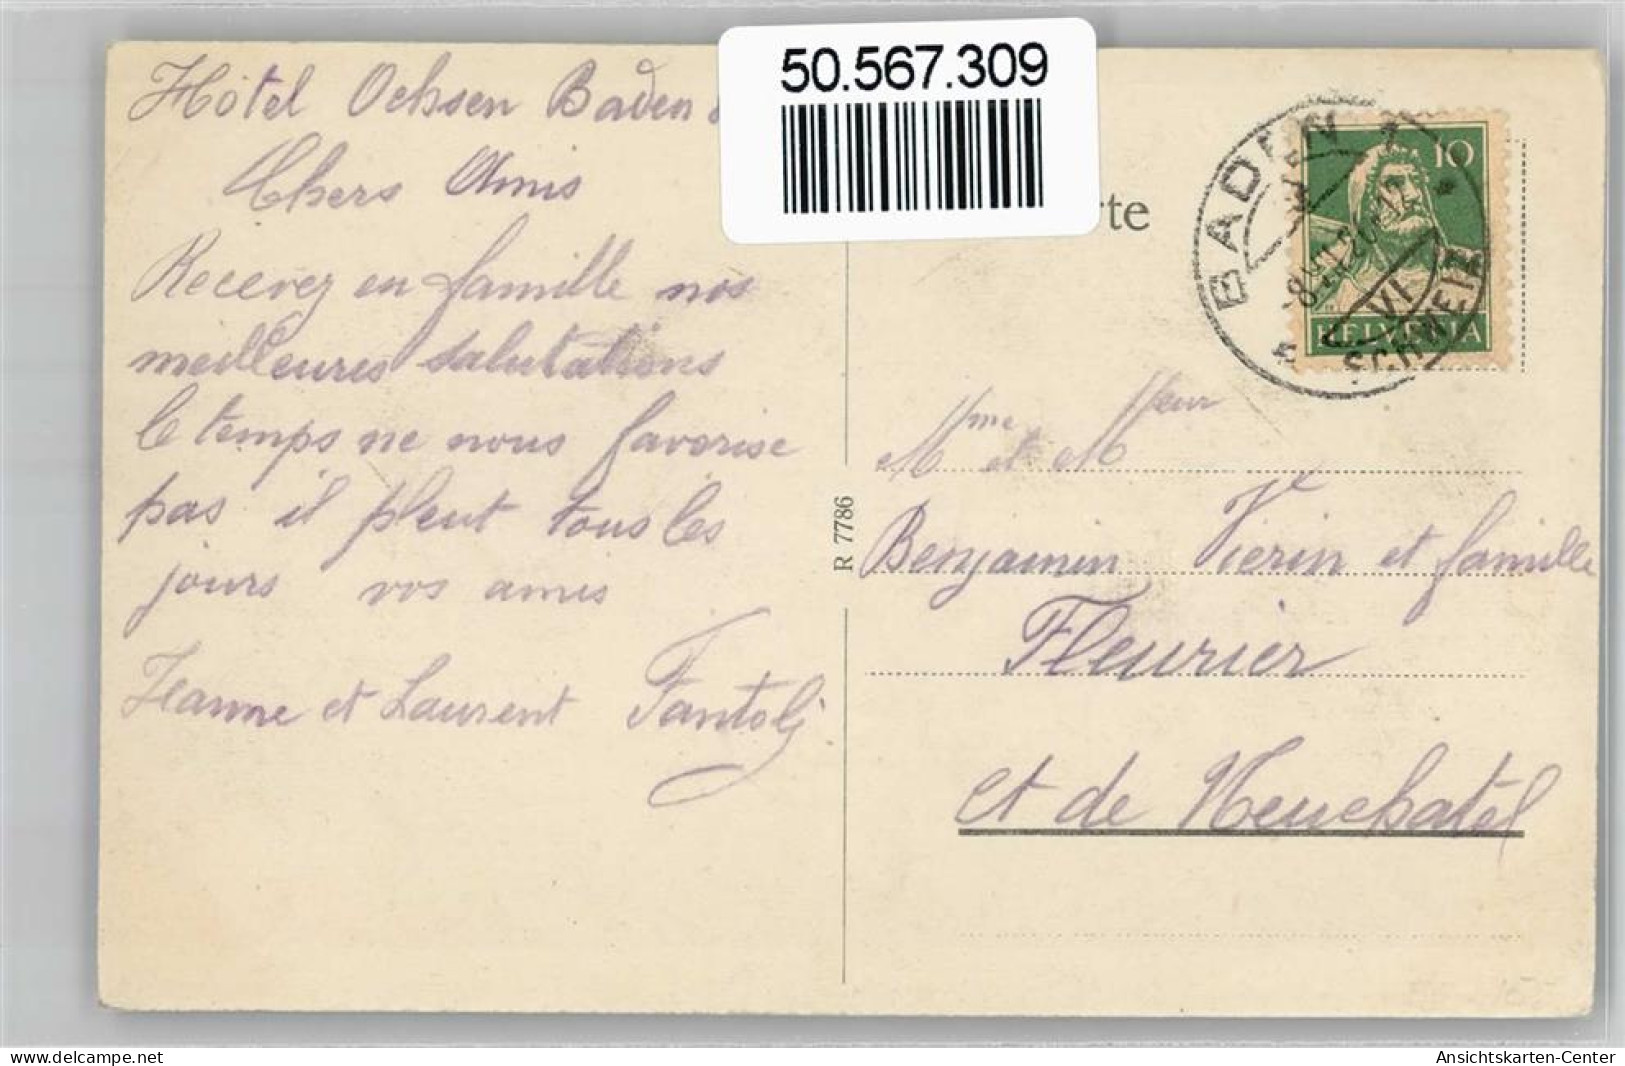 50.567.309
Hôtel Ochsen Baden
Chers Amis
Recevez en famille nos
meilleures salutations
le temps ne nous favorise
pas il pleut tous les
jours vos amis
Jeanne et Laurent Fantoli
rte
BADEN
SCHWEIZ
VI
10
HELVETIA
R 7786
Mme et M Meur
Benjamin Vierin et famille
Fleurier
et de Neuchatel
www.delcampe.net
Ansichtskarten-Center